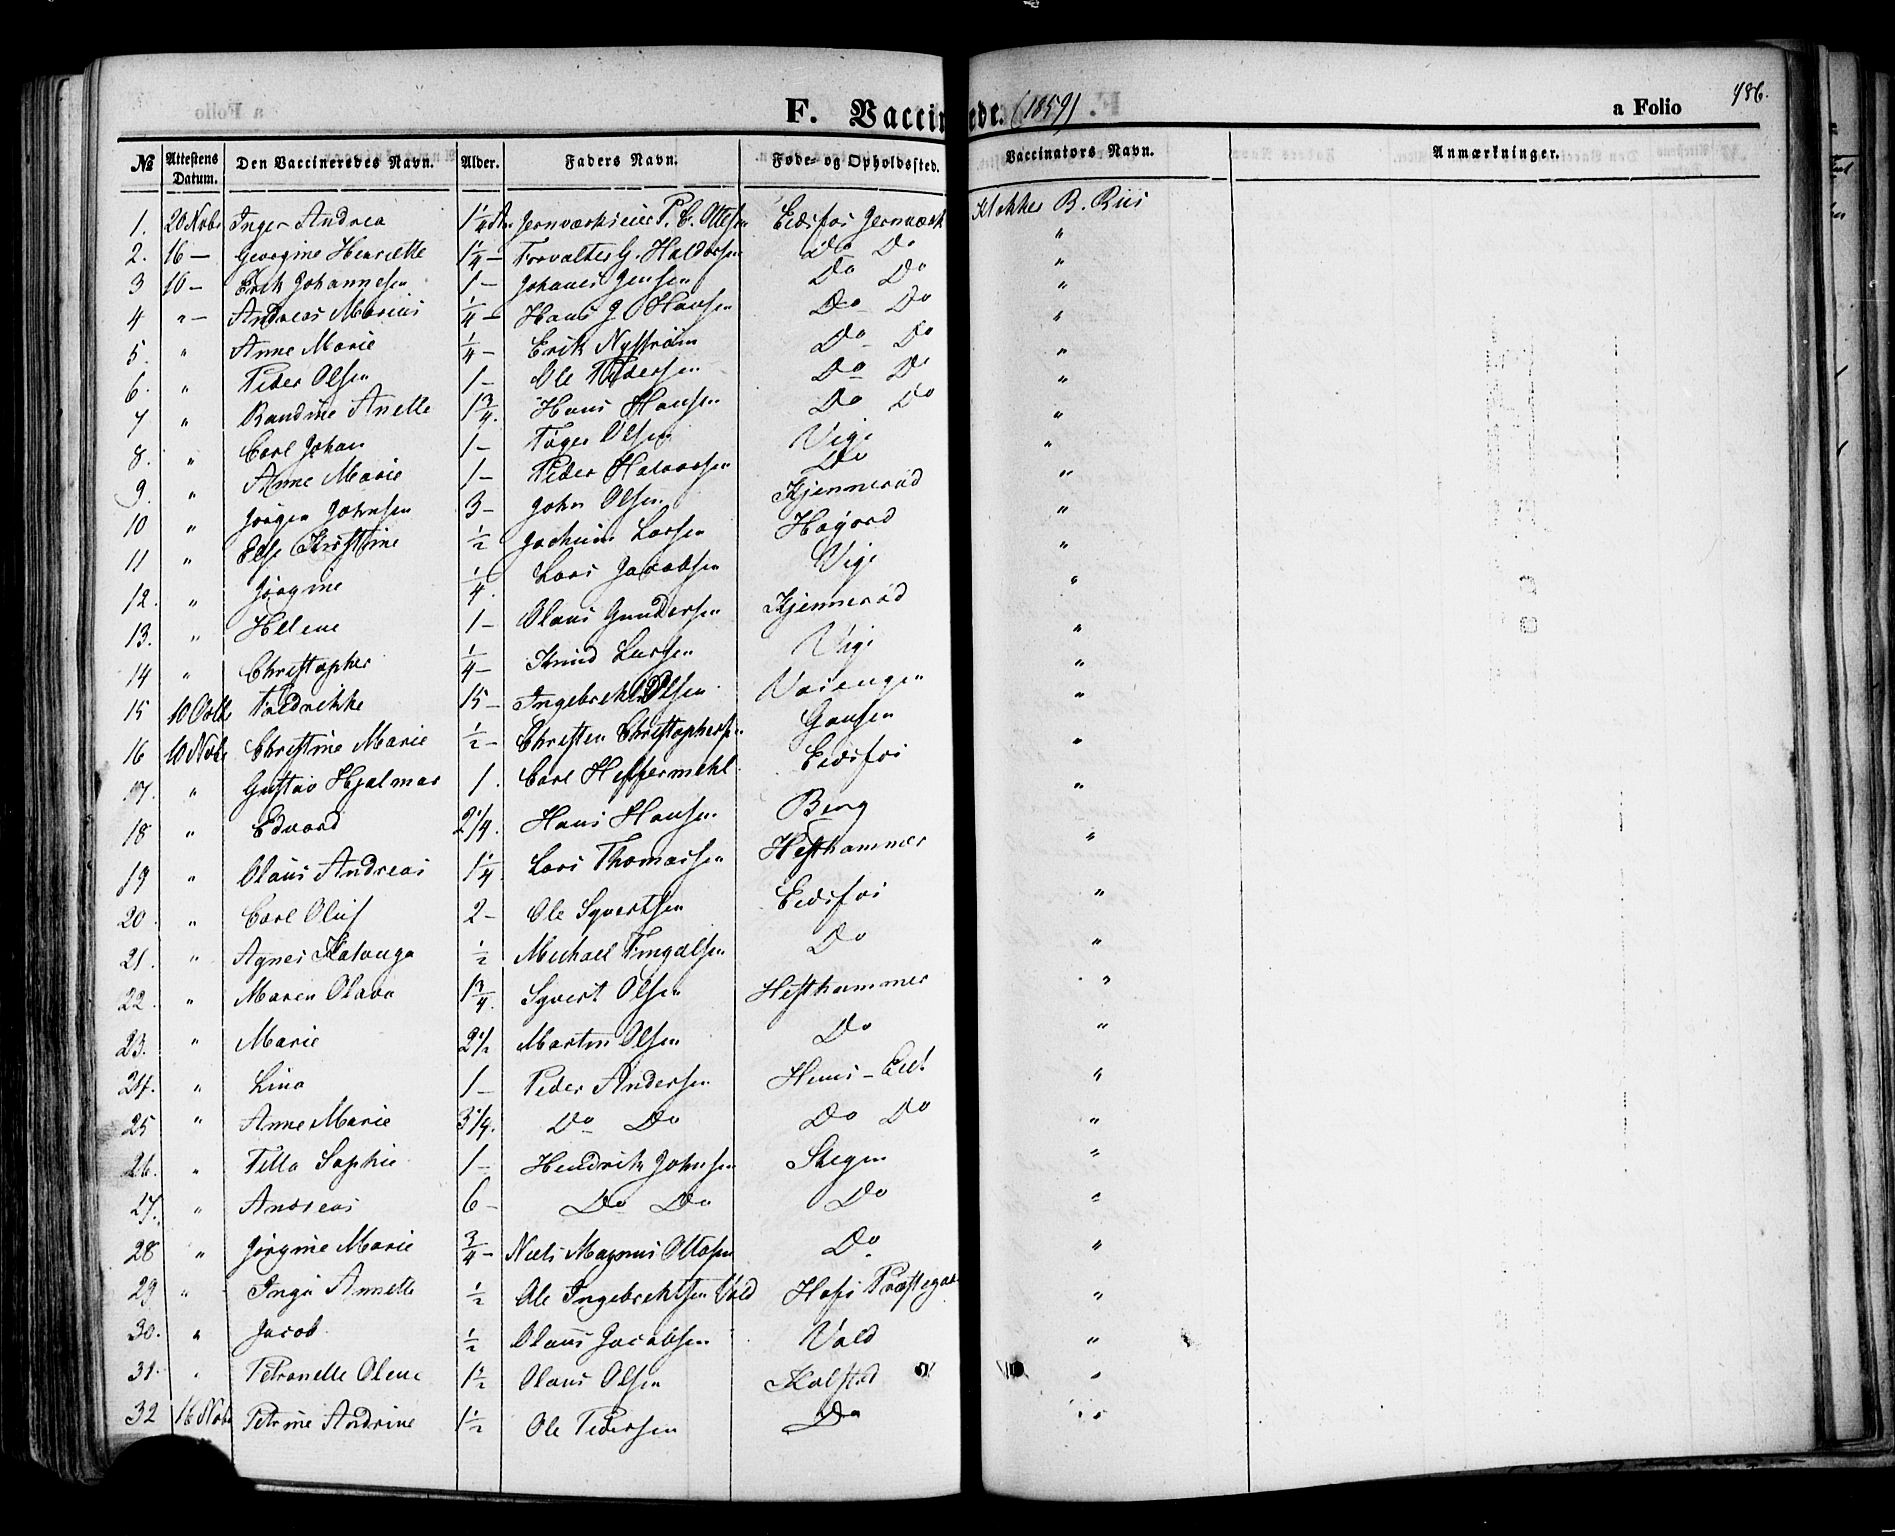 F. Vaccinerede. (1859) a Folio 486.
№ Attestens Datum. Den Vaccineredes Navn. Alder. Faders Navn. Føde- og Opholdssted. Vaccinators Navn. Anmærkninger.
1. 20 Nobr Inger Andrea 1¼ Jernværkseier P. C. Ottesen Eidsfos Jernværk Klokker B. Riis
2. 16 — Georgine Henriette 1¼ — Forvalter G. Haldorsen Do Do "
3 10 — Erik Johannesen 1 — Johanes Jensen Do Do "
4 " — Andreas Marius ¼ — Hans J. Hansen Do Do "
5. " Anne Marie ¼ — Erik Nystrøm Do Do "
6. " Peder Olsen 1 — Ole Pedersen Do Do "
7 " Randine Anette 1¾. Hans Hansen Do Do "
8. " Carl Johan 1 — Tøger Olsen Vige "
9. " Anne Marie 1 — Peder Halvorsen Do "
10 " Jørgen Johnsen 3 — John Olsen Kjennerød "
11 " Else Kristine ½ Jochum Larsen Hagord "
12. " Jørgine ¼. Lars Jacobsen Vige "
13. " Helene 1 — Olaus Gundersen Kjennerød "
14 " Christopher ¼ — Knud Larsen Vige "
15 10 Octbr Fredrikke 15 — Ingebrekt Olsen "
16 10 Nobr Christine Marie ½ — Christen Christophersen Gausen "
17. " Gustav Hjalmar 1. Carl Heffermehl Eidsfos "
18 " Edvard 2¼. Hans Hansen Berg "
19 " Olaus Andreas 1¼ Lars Thomassen Hesthammer "
20. " Carl Oluf 2 — Ole Syvertsen Eidsfos "
21. " Agnes ½ Michael Do "
22. " Maren Olava 1¾. Syvert Olsen Hesthammer "
23. " Marie 2½ Martin Olsen Do "
24. " Lina 1 — Peder Andersen "
25 " Anne Marie 3¼. Do Do Do Do "
26. " Tilla Sophie 1 — Hendrik Johnsen Stegen "
27. " Andreas 6 — Do Do Do "
28 " Jørgine Marie ¾ — Niels Magnus Ottesen Do "
29 " Inga Annette ½ Ole Ingebrektsen Vold Hofs Præstegaar "
30. " Jacob ½ Olaus Jacobsen Vold "
31. " Petronelle Olene 1½ Olaus Olsen Kolstad "
32 16 Nobr Petrine Andrine 1½ Ole Pedersen Do "